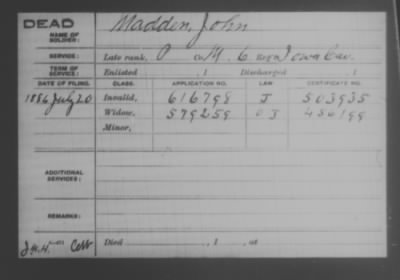 DEAD
NAME OF SOLDIER: Madden, John
SERVICE: Late rank, P Co. M, 6 Reg't Iowa Cav.
TERM OF SERVICE: Enlisted , 1 Discharged , 1
DATE OF FILING. CLASS. APPLICATION NO. LAW CERTIFICATE NO.
1886 July 20 Invalid, 616798 J 503935
Widow, 579259 O J 456199
Minor,
ADDITIONAL SERVICES:
REMARKS:
Died , 1 , at